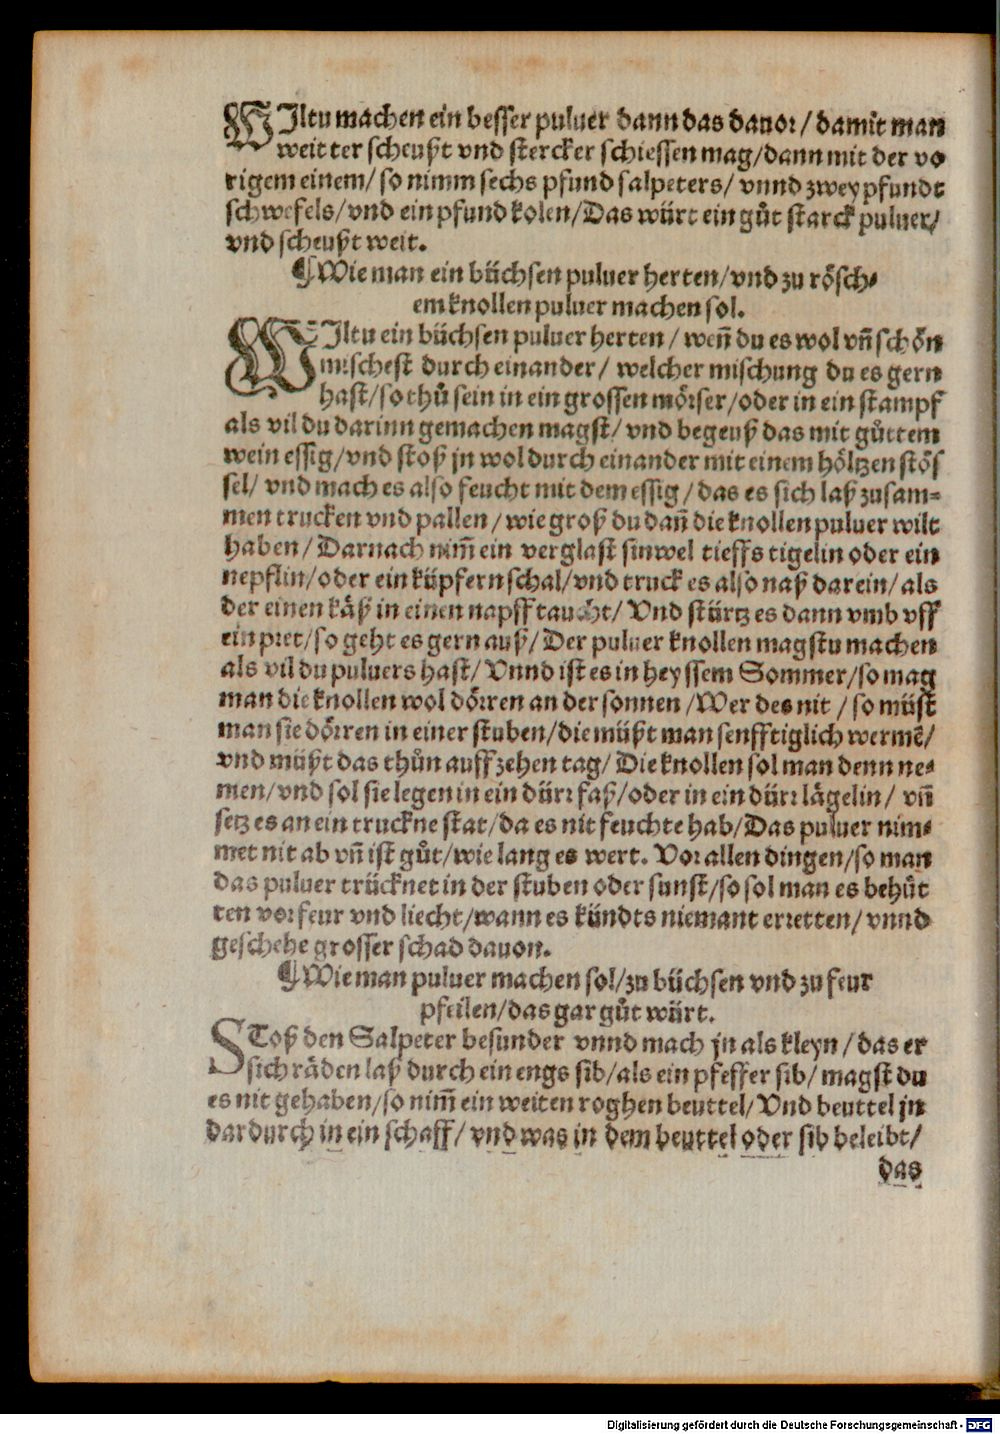 WIltu machen ein besser puluer dann das dauor/ damit man
weit ter scheußt vnd stercker schiessen mag/dann mit der vo
rigem einem/ so nimm sechs pfund salpeters/ vnnd zwey pfundt
schwefels/vnd ein pfund kolen/Das würt ein gůt starck puluer/
vnd scheußt weit.
¶Wie man ein büchsen puluer herten/vnd zu rösch⸗
em knollen puluer machen sol.
WIltu ein büchsen puluer herten/ weñ du es wol vñ schön
mischest durch einander/ welcher mischung du es gern
hast/so thů sein in ein grossen mörser/oder in ein stampf
als vil du darinn gemachen magst/ vnd begeuß das mit gůttem
wein essig/vnd stoß jn wol durch einander mit einem höltzen stös
sel/ vnd mach es also feucht mit dem essig/das es sich laß zusam⸗
men trucken vnd pallen/wie groß du dañ die knollen puluer wilt
haben/Darnach nim̃ ein verglast sinwel tieffs tigelin oder ein
nepflin/oder ein küpfern schal/vnd truck es also naß darein/als
der einen käß in einen napff taucht/ Vnd stürtz es dann vmb vff
ein pret/so geht es gern auß/Der puluer knollen magstu machen
als vil du puluers hast/ Vnnd ist es in heyssem Sommer/so mag
man die knollen wol dörren an der sonnen/Wer des nit/ so müst
man sie dörren in einer stuben/die müßt man senfftiglich wermẽ/
vnd müßt das thůn auff zehen tag/ Die knollen sol man denn ne⸗
men/vnd sol sie legen in ein dürr faß/oder in ein dürr lägelin/ vñ
setz es an ein truckne stat/da es nit feuchte hab/Das puluer nim⸗
met nit ab vñ ist gůt/wie lang es wert. Vor allen dingen/so man
das puluer trücknet in der stuben oder sunst/so sol man es behůt
ten vor feur vnd liecht/wann es kündts niemant erretten/ vnnd
geschehe grosser schad dauon.
¶Wie man puluer machen sol/zu büchsen vnd zu feur
pfeilen/das gar gůt würt.
SToß den Salpeter besunder vnnd mach jn als kleyn/das er
sich räden laß durch ein engs sib/als ein pfeffer sib/ magst du
es nit gehaben/so nim̃ ein weiten roghen beuttel/Vnd beuttel jn
dardurch in ein schaff/ vnd was in dem beuttel oder sib beleibt/
das
Digitalisierung gefördert durch die Deutsche Forschungsgemeinschaft - DFG